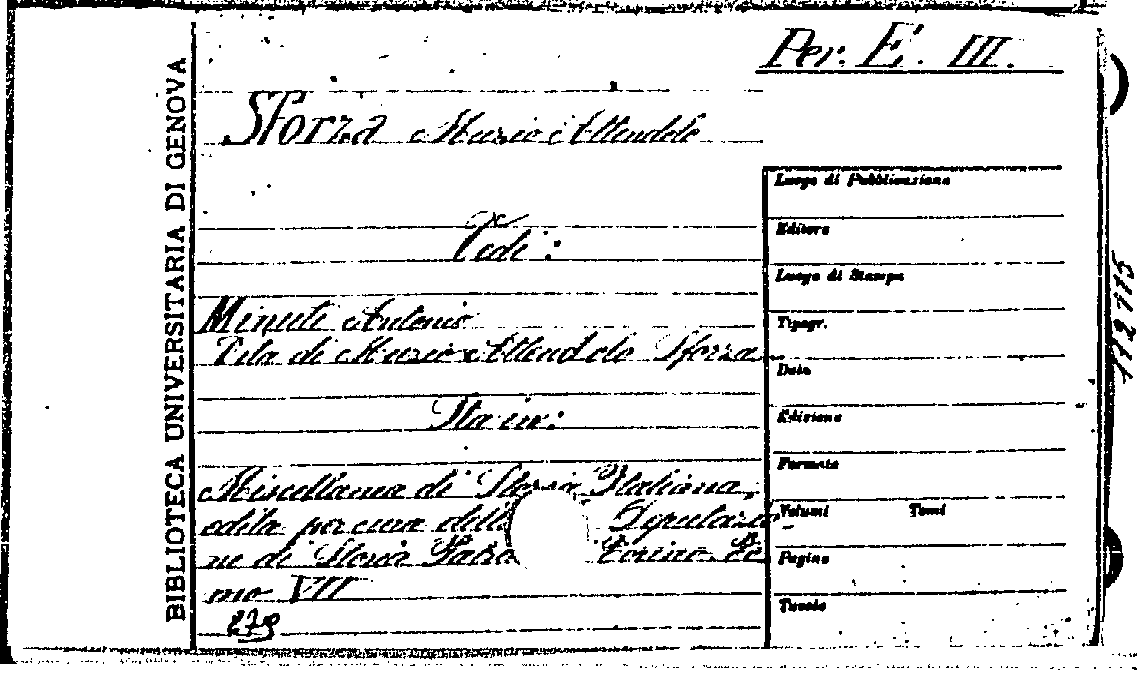 Per. E. III.
Sforza Muzio Attendolo
Vedi:
Minuti Antonio
Vita di Muzio Attendolo Sforza
Sta in:
Miscellanea di Storia Italiana,
edita per cura della Deputazio-
ne di Storia Patria Torino To
mo VII
279
BIBLIOTECA UNIVERSITARIA DI GENOVA
Luogo di Pubblicazione
Editore
Luogo di Stampa
Tipogr.
Data
Edizione
Formato
Volumi Tomi
Pagine
Tavole